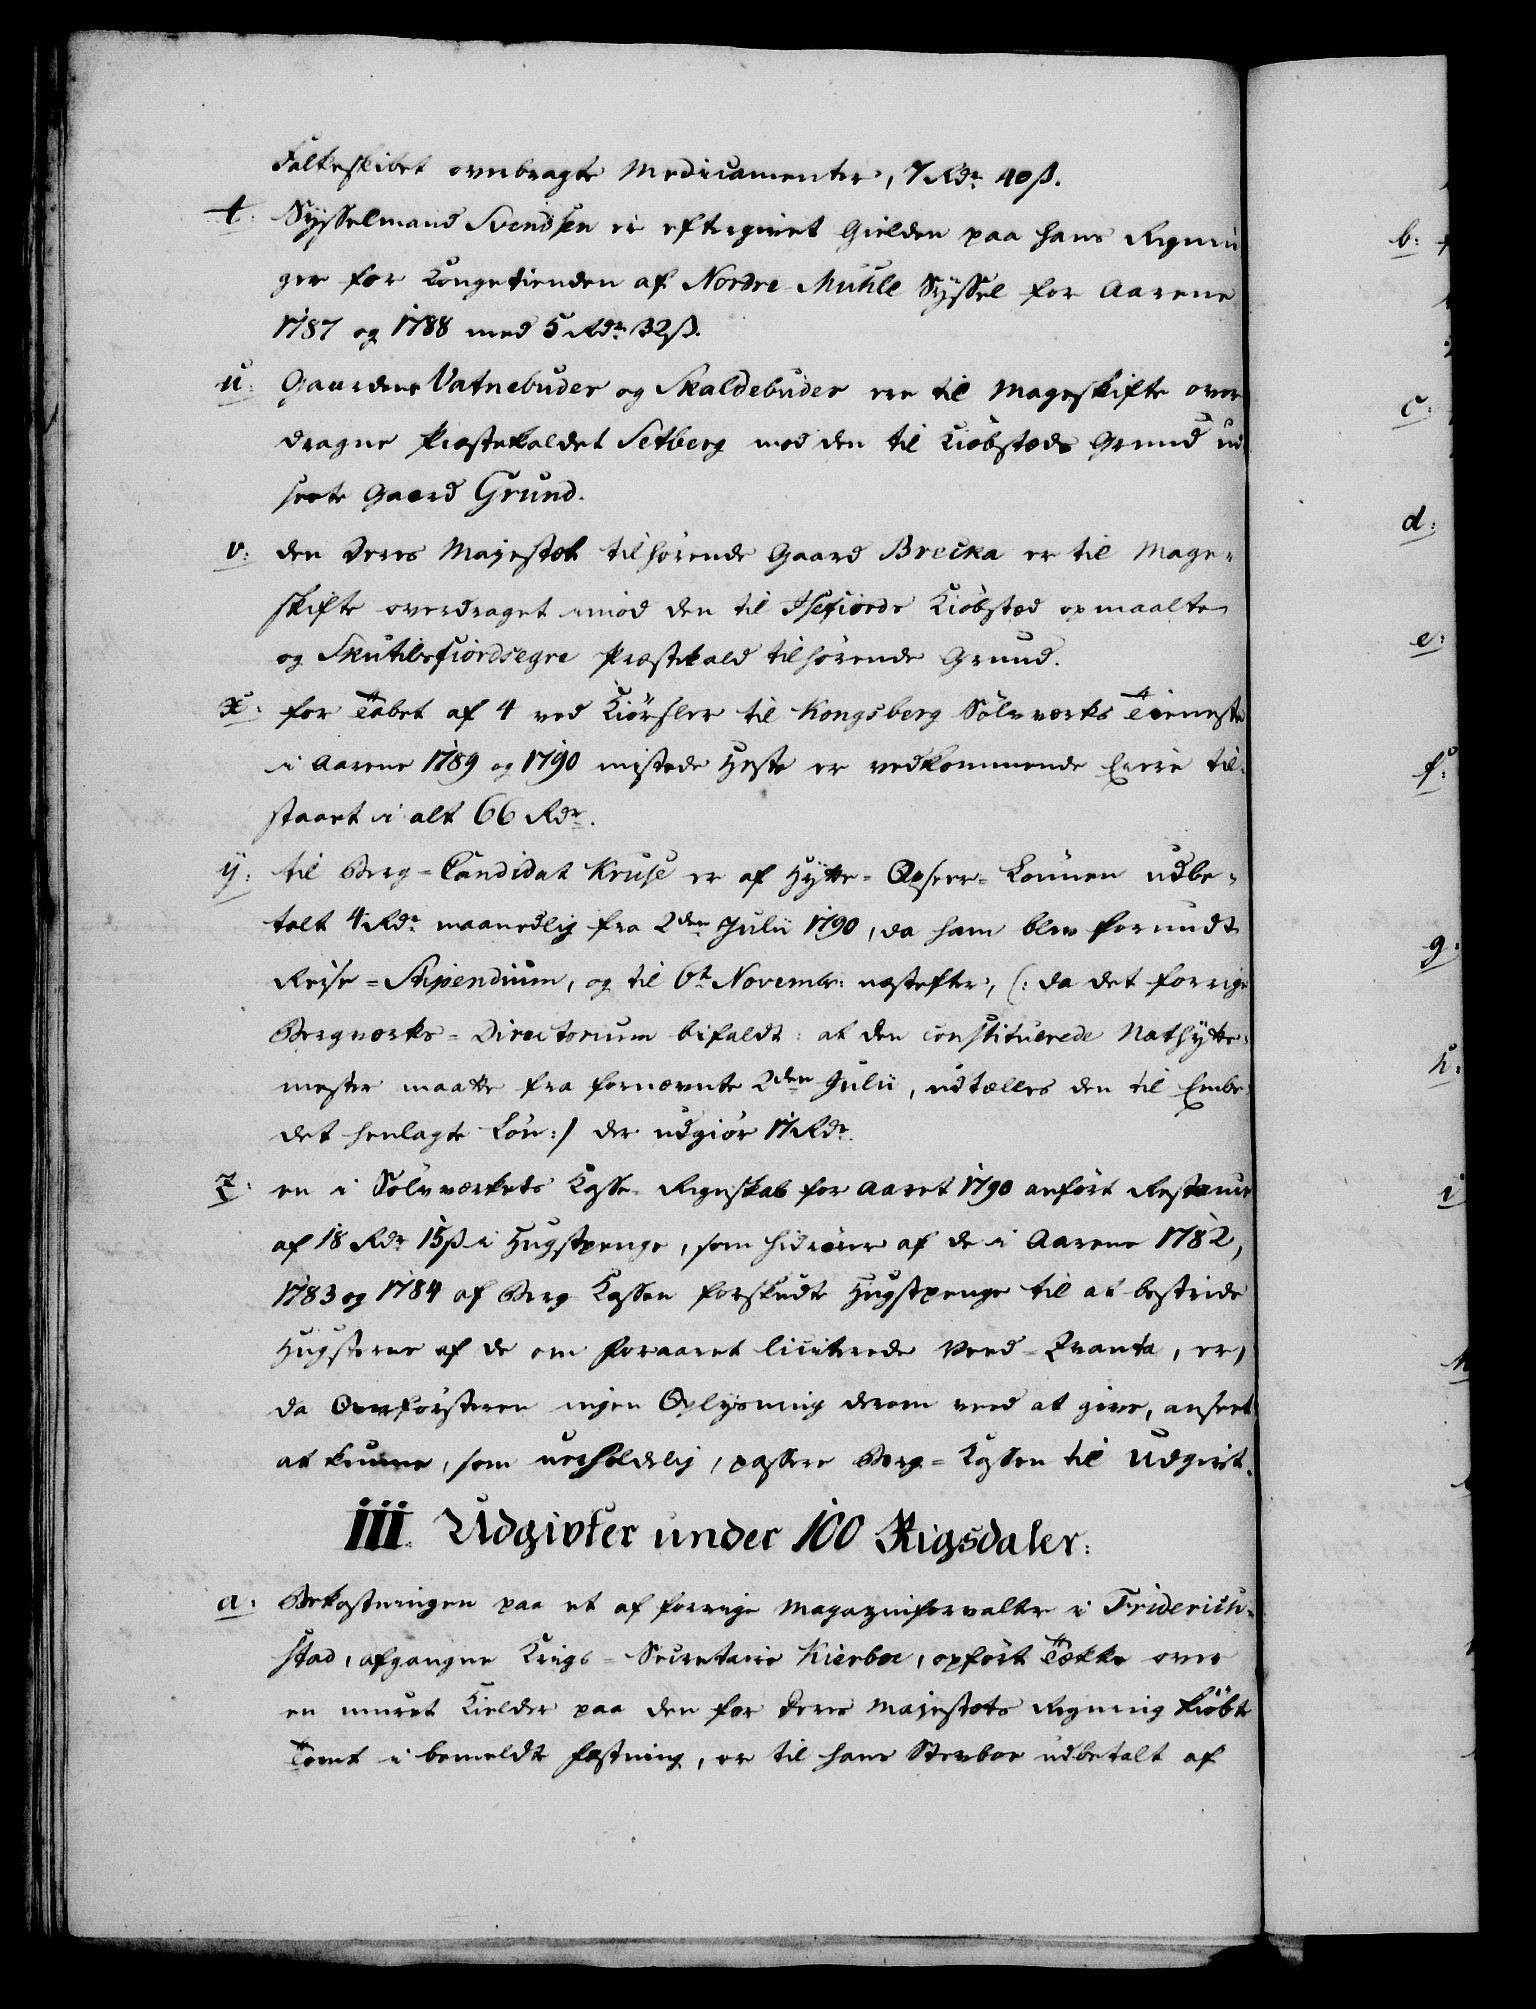 Falkeskibet overbragte Medicamenter, 7 Rdr 40 ß.
t: Sysselmand Svendsen er eftergivet Gielden paa hans Regnin
ger for Kongetienden af Nordre Muhle Syssel for Aarene
1787 og 1788 med 5 Rdr 32 ß.
u: Gaardene Vatnebuder og Skaldebuder ere til Mageskifte over
dragne Præstekaldet Setberg mod den til Kiøbsteds Grund ud
seete Gaard Grund.
v: den Deres Majestæt tilhørende Gaard Brecka er til Mage-
skifte overdraget imod den til Isefiords Kiøbsted opmaalte
og Skutilsfiordseyre Præstekald tilhørende Grund.
x: for Tabet af 4 ved Kiørsler til Kongsberg Sølvverks Tieneste
i Aarene 1789 og 1790 mistede Heste er vedkommende Eiere til-
staaet i alt 66 Rdr.
y: til Berg-Candidat Kruse er af Hytte-Opseer-Lønnen udbe-
talt 4 Rdr maanedlig fra 2den Julii 1790, da ham blev forundt
Reise-Stipendium, og til 6te Novembr: næstefter, (: da det forrige
Bergverks-Directorium bifaldt: at den constituerede Nathytte-
mester maatte fra fornævnte 2den Julii, udtælles den til Embe
det henlagte Løn:) der udgiør 17 Rdr.
z: en i Sølvverkets Casse-Regnskab for Aaret 1790 anført Restance
af 18 Rdr 15 ß i Hugstpenge, som hidrører af de i Aarene 1782,
1783 og 1784 af Berg Cassen forskudte Hugstpenge til at bestride
Hugsterne af de om Foraaret liciterede Veed-Qvanta, er,
da Overførsteren ingen Oplysning derom veed at give, anseet
at kunne, som uerholdelig, passere Berg-Cassen til Udgivt.
III. Udgivter under 100 Rigsdaler:
a: Bekostningen paa et af forrige Magazinforvalter i Friderich-
stad, afgangne Krigs-Secretaire Kierboe, opført Tække over
en muret Kielder paa den for Deres Majestæts Regning kiøbte
Tomt i bemeldte Fæstning, er til hans Stervboe udbetalt af
b:
c:
d:
e:
f:
g:
h:
i